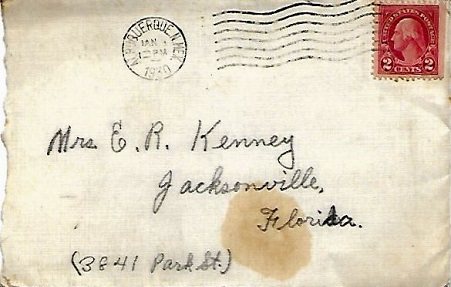 ALBUQUERQUE, N. MEX.
JAN
PM
1930
UNITED STATES POSTAGE
2 CENTS 2
Mrs. E. R. Kenney
Jacksonville,
Florida.
(3841 Park St.)